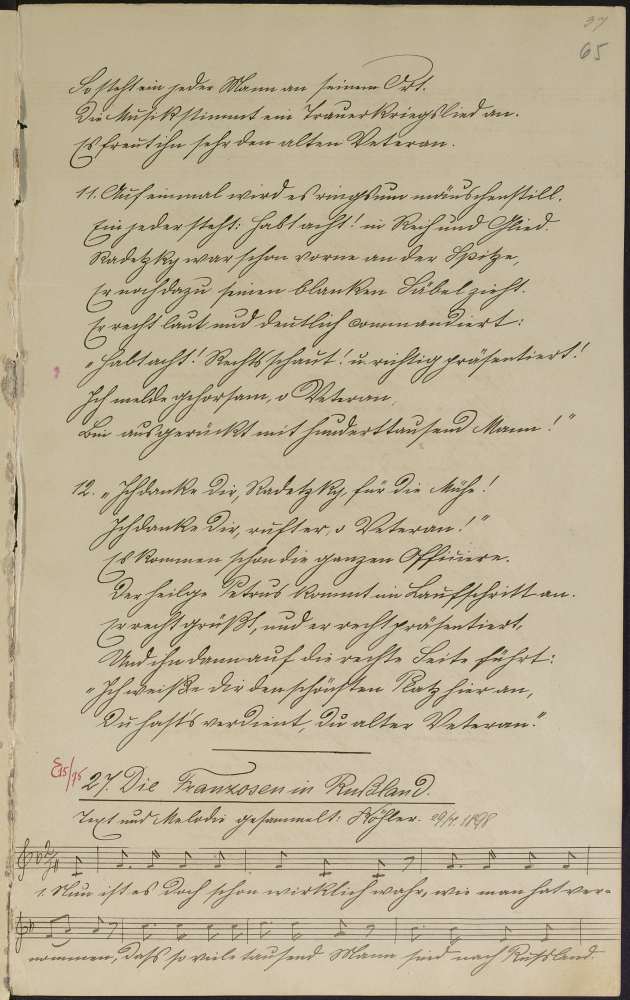 37
65
So steht ein jeder Mann an seinem Ort.
Die Musik stimmt ein Trauerkriegslied an.
Es freut ihn sehr den alten Veteran.
11. Auf einmal wird es ringsum mäuschenstill.
Ein jeder steht: Habt acht! in Reih und Glied.
Radetzky war schon vorne an der Spitze,
Er noch dazu seinen blanken Säbel zieht.
Er recht laut und deutlich commandiert:
„Habt acht! Rechts schaut! u. richtig präsentiert!
Ich melde gehorsam, o Veteran,
Bin ausgerückt mit hunderttausend Mann!"
12. „Ich danke Dir, Radetzky, für die Mühe!
Ich danke Dir, ruft er, o Veteran!"
Es kommen schon die ganzen Offiziere.
Der heilge Petrus kommt im Laufschritt an.
Er recht grüßt, und er recht präsentiert,
Und ihn dann auf die rechte Seite führt:
„Ich weiße Dir den schönsten Platz hier an,
Du hast's verdient, Du alter Veteran."
27. Die Franzosen in Rußland.
Text und Melodie gesammelt: Köhler.
1. Nun ist es doch schon wirklich wahr, wie man hat ver-
nommen, dass so viele tausend Mann sind nach Russland